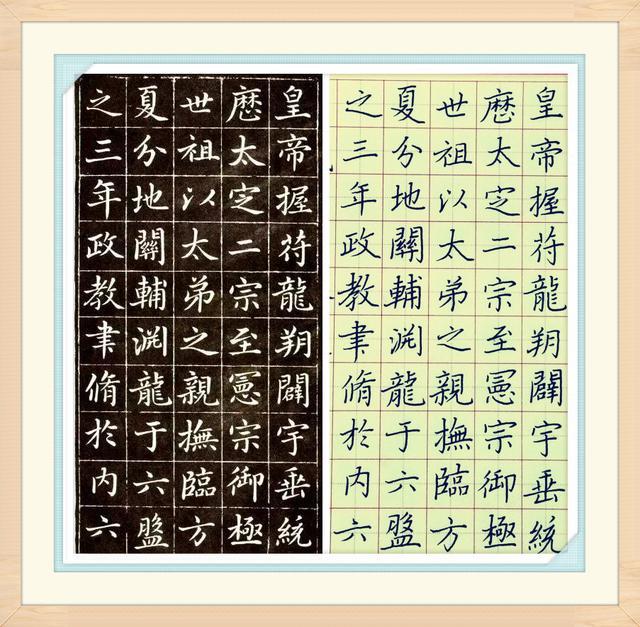 皇帝握苻龍朔闢宇垂統
歴太㝎二宗至憲宗御極
世祖以太弟之親撫臨方
夏分地關輔渊龍于六盤
之三年政教聿脩於内六
皇帝握苻龍朔闢宇垂統
歴太㝎二宗至憲宗御極
世祖以太弟之親撫臨方
夏分地關輔渊龍于六盤
之三年政教聿脩於内六